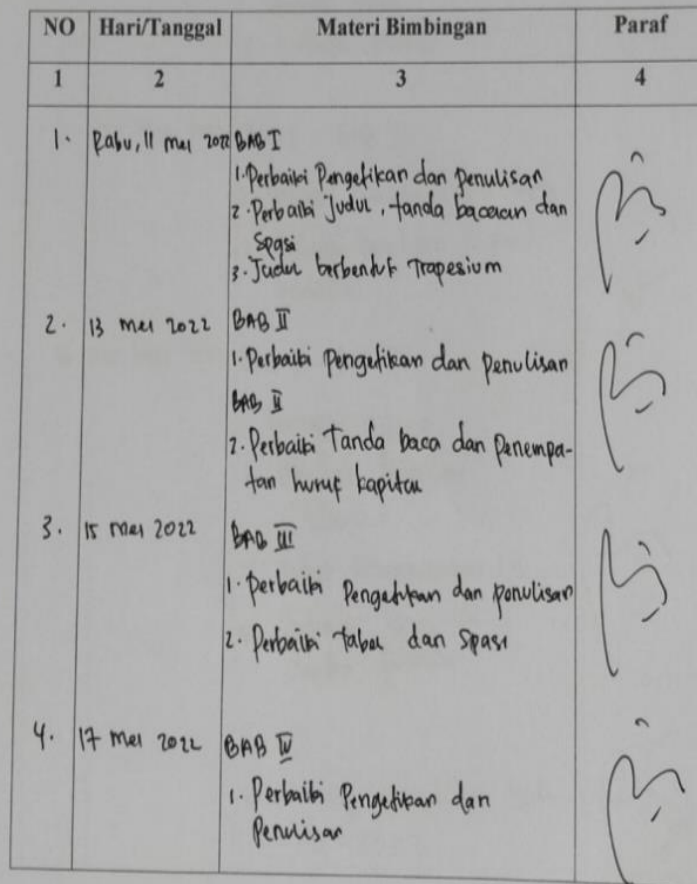 NO Hari/Tanggal Materi Bimbingan Paraf
1 2 3 4
1. Rabu, 11 mei 2022 BAB I
1. Perbaiki Pengetikan dan penulisan
2. Perbaiki Judul, tanda bacaan dan
Spasi
3. Judul berbentuk Trapesium
2. 13 mei 2022 BAB II
1. Perbaiki pengetikan dan penulisan
BAB II
2. Perbaiki Tanda baca dan Penempa-
tan huruf kapital
3. 15 mei 2022 BAB III
1. perbaiki Pengetikan dan penulisan
2. Perbaiki tabel dan spasi
4. 17 mei 2022 BAB IV
1. Perbaiki Pengetikan dan
Penulisan